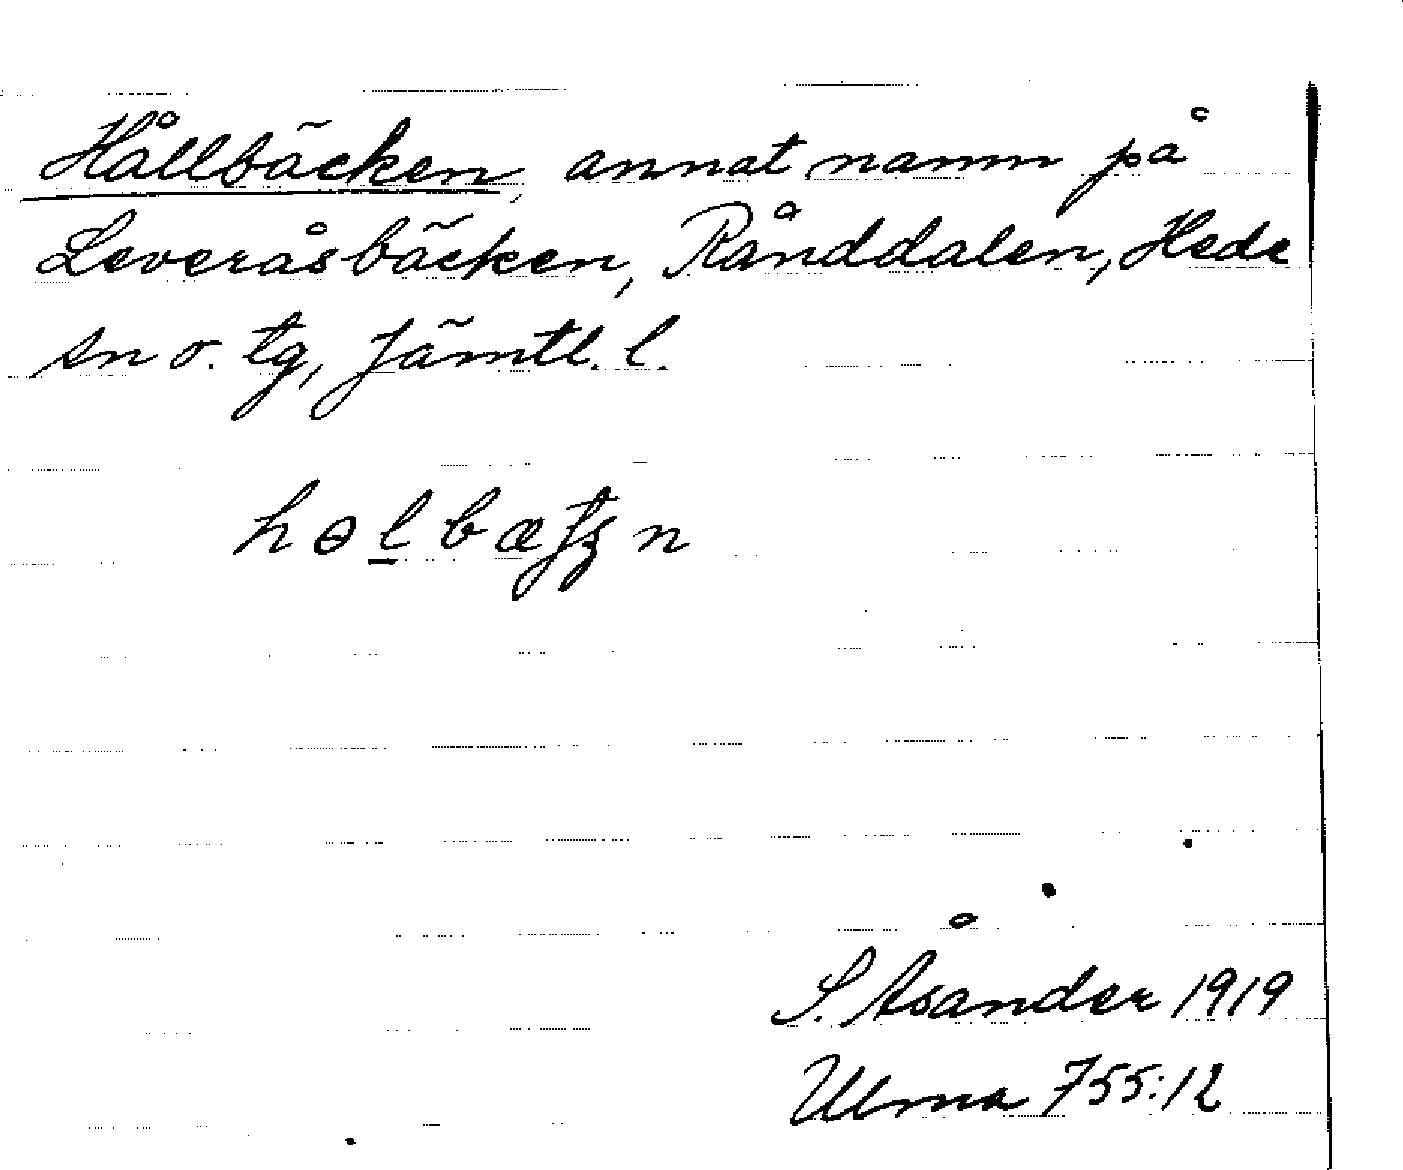 Hållbäcken, annat namn på
Leveråsbäcken, Rånddalen, Hede
sn o. tg, Jämtl. l.
hɵl̲bætʂn
S. Åsander 1919
Ulma 755:12